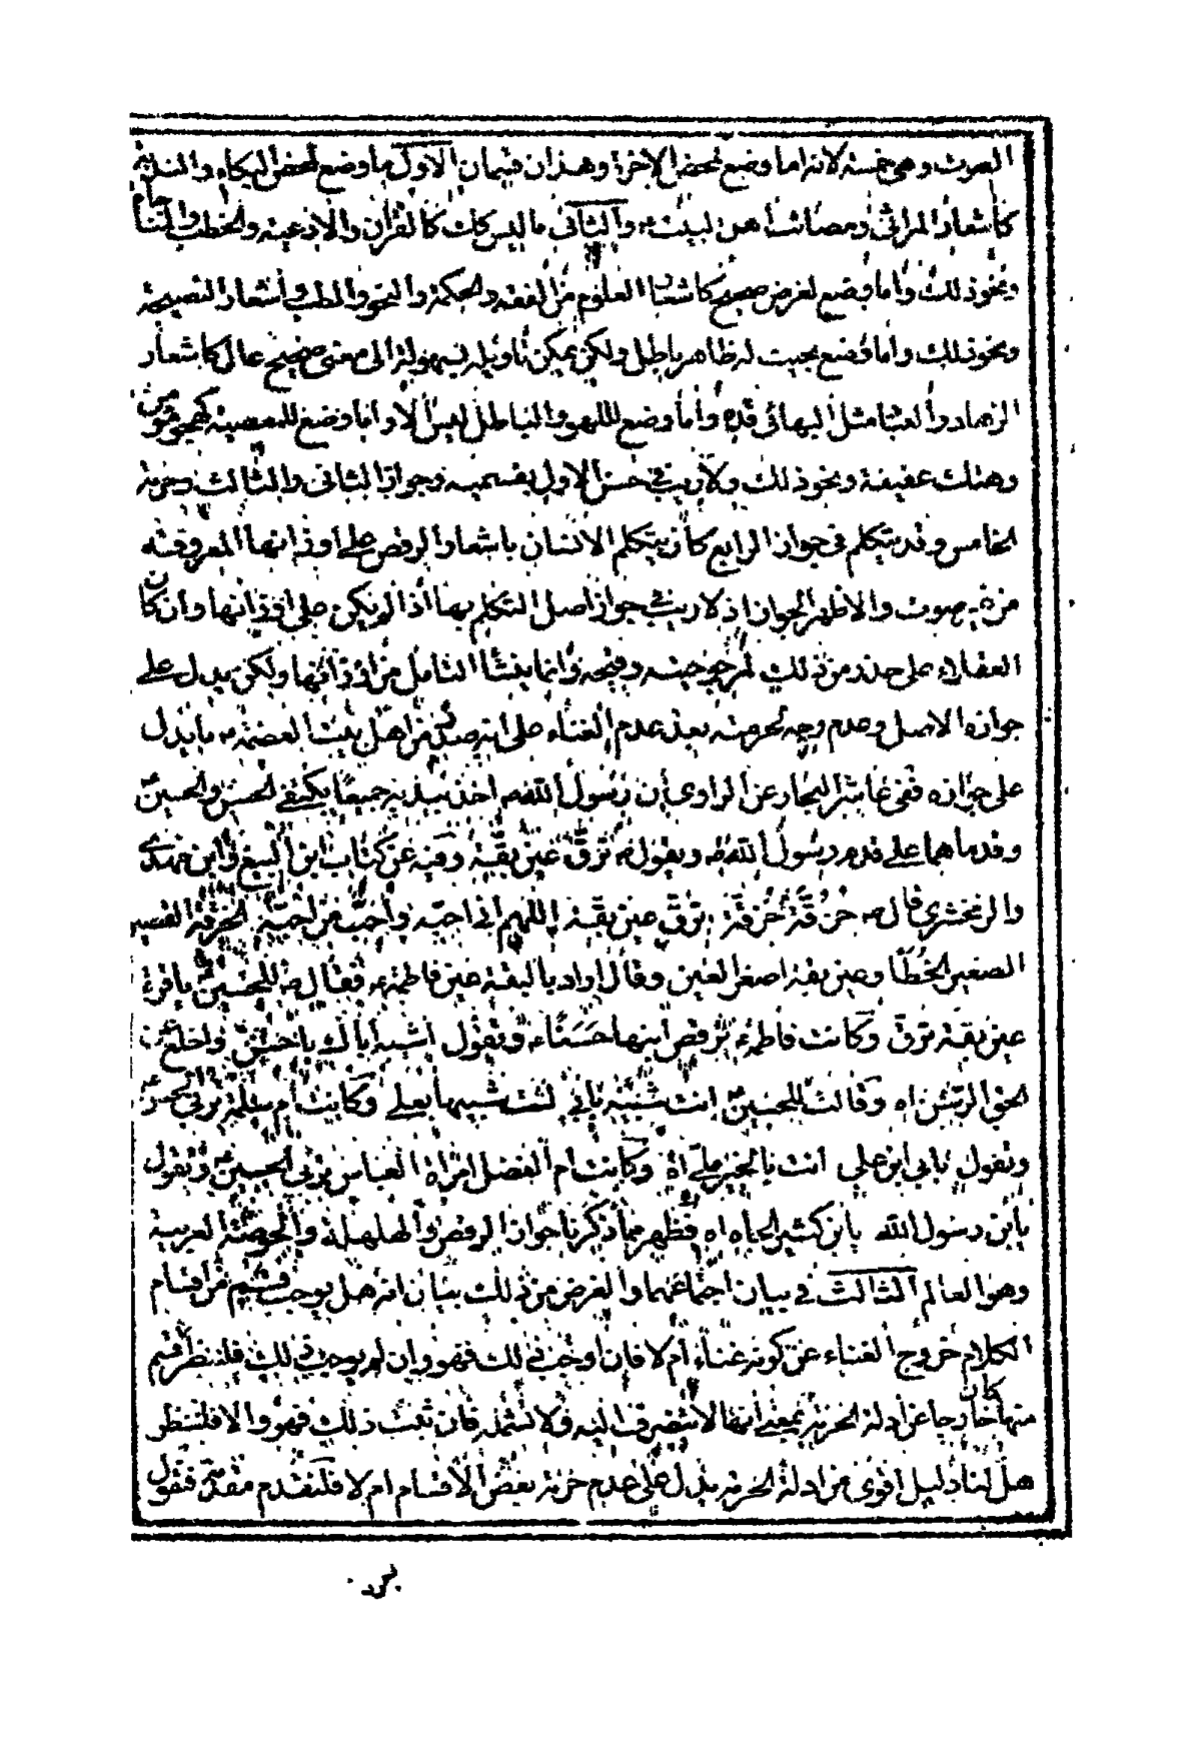 الصوت وهى خمسة لانه اما وضع لمحض الاخرة وهذان قسمان الاول ما وضع لمحض البكاء والندبة
كأشعار المراثى ومصائب أهل البيتء والثانى ما ليس كك كالقرآن والادعية والخطب والمناجاة
ونحو ذلك وأما وضع لغرض صحيح كاشعار العلوم من الفقه والحكمة والنحو والطب وأشعار النصيحة
ونحو ذلك وأما وضع بحيث له ظاهر باطل ولكن يمكن تأويله بسهولة الى معنى صحيح عال كاشعار
الزهاد والعشا مثل البهائى قده وأما وضع للهو والباطل ليس الا واما وضع للمعصية كهجو مؤمن
وهتك عفيفة ونحو ذلك ولا ريب فى حسن الاول بقسميه وجواز الثانى والثالث وحرمة
الخامس وقد يتكلم فى جواز الرابع كأن يتكلم الانسان باشعار الرقص على اوزانها المعروفة
من صوت والاظهر الجواز اذ لا ريب فى جواز اصل التكلم بها اذا لم يكن على اوزانها وان كان
العقلاء على حذر من ذلك لمرجوحيته وقبحه وانما ينشأ التامل من اوزانها ولكن يدل على
جوازه الاصل وعدم وجه لحرمته بعد عدم الغناء على انه صدر من اهل بيت العصمةء ما يدل
على جوازه ففى عاشر البحار عن الراوى إن رسول اللهص اخذ بيديه جميعا بكتفى الحسن والحسين
وقدماهما على قدم رسول اللهص ويقولص ترق عين بقة وفيه عن كتاب ابن البيع وابن مهدى
والزمخشرى قالص حزقة حزقة ترق عين بقة اللهم انى احبه وأحب من احبه الحزقة القصير
الصغير الخطا وعين بقة اصغر العين وقال اراد بالبقة عين فاطمةء فقالص للحسينء يا قرة
عين بقة ترق وكانت فاطمةء ترقص ابنها حسناء وتقول أشبه أباك يا حسن واخلع عن
الحق الرسن اه وقالت للحسينء انت شبيه بأبى لست شبيها بعلى وكانت أم سلمة تربى الحسنء
وتقول بابى ابن على انت بالخير ملى اه وكانت ام الفضل امرأة العباس تربى الحسينء وتقول
يا بن رسول الله يا بن كثير الجاه اه فظهر مما ذكرنا جواز الرقص والهلهلة والحوضة العربية
وهو العالم الثالث فى بيان اجتماعهما والغرض من ذلك بيان انه هل يوجب قسم من اقسام
الكلام خروج الغناء عن كونه غناء أم لا فان اوجب ذلك فهو وإن لم يوجب ذلك فلننظر اقسم
منها كان خارجا عن ادلة الحرمة بمعنى انها لا تنصرف اليه ولا تشمله فان ثبت ذلك فهو والا فلننظر
هل لنا دليل اقوى من ادلة الحرمة يدل على عدم حرمة بعض الأقسام ام لا فلنقدم مقدمة فنقول